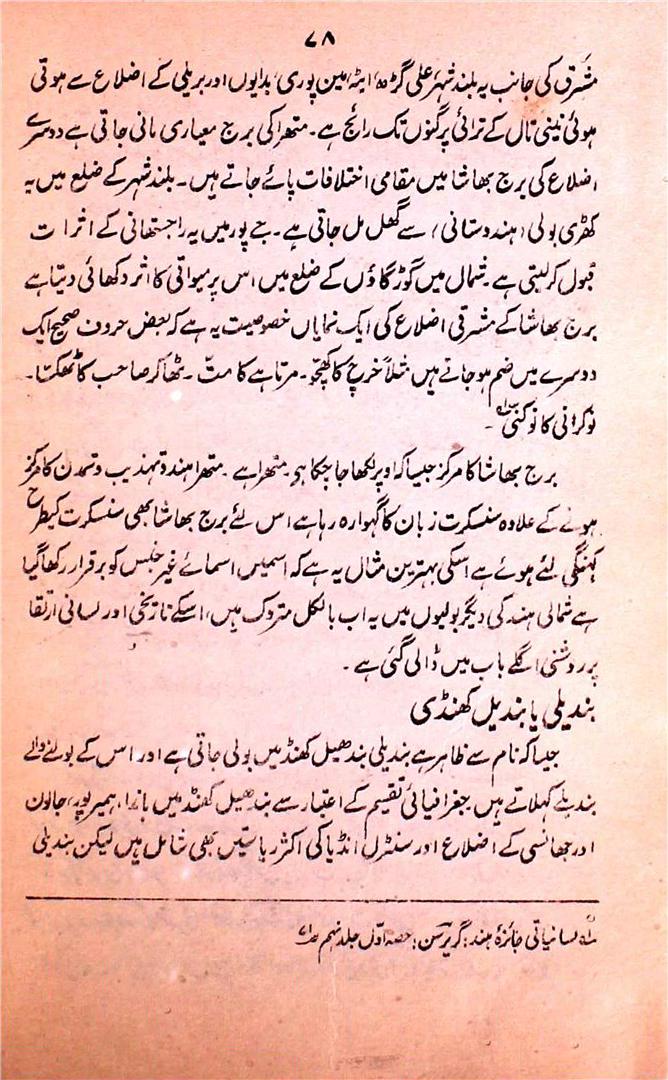 ۷۸
مشرق کی جانب یہ بلند شہر، علی گڑھ، ایٹہ، مین پوری، بدایوں اور بریلی کے اضلاع سے ہوتی
ہوئی نینی تال کے ترائی پرگنوں تک رائج ہے۔ متھرا کی برج معیاری مانی جاتی ہے دوسرے
اضلاع کی برج بھاشا میں مقامی اختلافات پائے جاتے ہیں۔ بلند شہر کے ضلع میں یہ
کھڑی بولی (ہندوستانی) سے گھل مل جاتی ہے۔ جے پور میں یہ راجستھانی کے اثرات
قبول کرلیتی ہے۔ شمال میں گوڑگاؤں کے ضلع میں اس پر میواتی کا اثر دکھائی دیتا ہے
برج بھاشا کے مشرقی اضلاع کی ایک نمایاں خصوصیت یہ ہے کہ بعض حروف صحیح ایک
دوسرے میں ضم ہو جاتے ہیں مثلاً خرچ کا کھچّو۔ مرتا ہے کا متّ۔ ٹھاکر صاحب کا
نوکرانی کا نوکنی۔
برج بھاشا کا مرکز جیسا کہ اوپر لکھا جا چکا ہو متھرا ہے۔ متھرا ہندو تہذیب و تمدن کا مرکز
ہونے کے علاوہ سنسکرت زبان کا گہوارہ رہا ہے اس لئے برج بھاشا بھی سنسکرت کیطرح
کہنگی لئے ہوئے ہے اسکی بہترین مثال یہ ہے کہ اسمیں اسمائے غیر جنس کو برقرار رکھا گیا
ہے شمالی ہند کی دیگر بولیوں میں یہ اب بالکل متروک ہیں، اسکے تاریخی اور لسانی ارتقا
پر روشنی اگلے باب میں ڈالی گئی ہے۔
بندیلی یا بندیل کھنڈی
جیسا کہ نام سے ظاہر ہے بندیلی بندھیل کھنڈ میں بولی جاتی ہے اور اس کے بولنے والے
بندیلے کہلاتے ہیں، جغرافیائی تقسیم کے اعتبار سے بندھیل کھنڈ میں باندا، ہمیرپور، جالون
اور جھانسی کے اضلاع اور سنٹرل انڈیا کی اکثر ریاستیں بھی شامل ہیں لیکن بندیلی
لسانیاتی جائزۂ ہند: گریرسن: حصہ اوّل جلد نہم ص۷۱